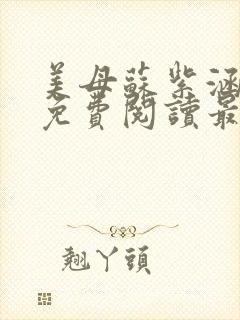 美母蘇紫涵
免費閱讀最
翹丫頭